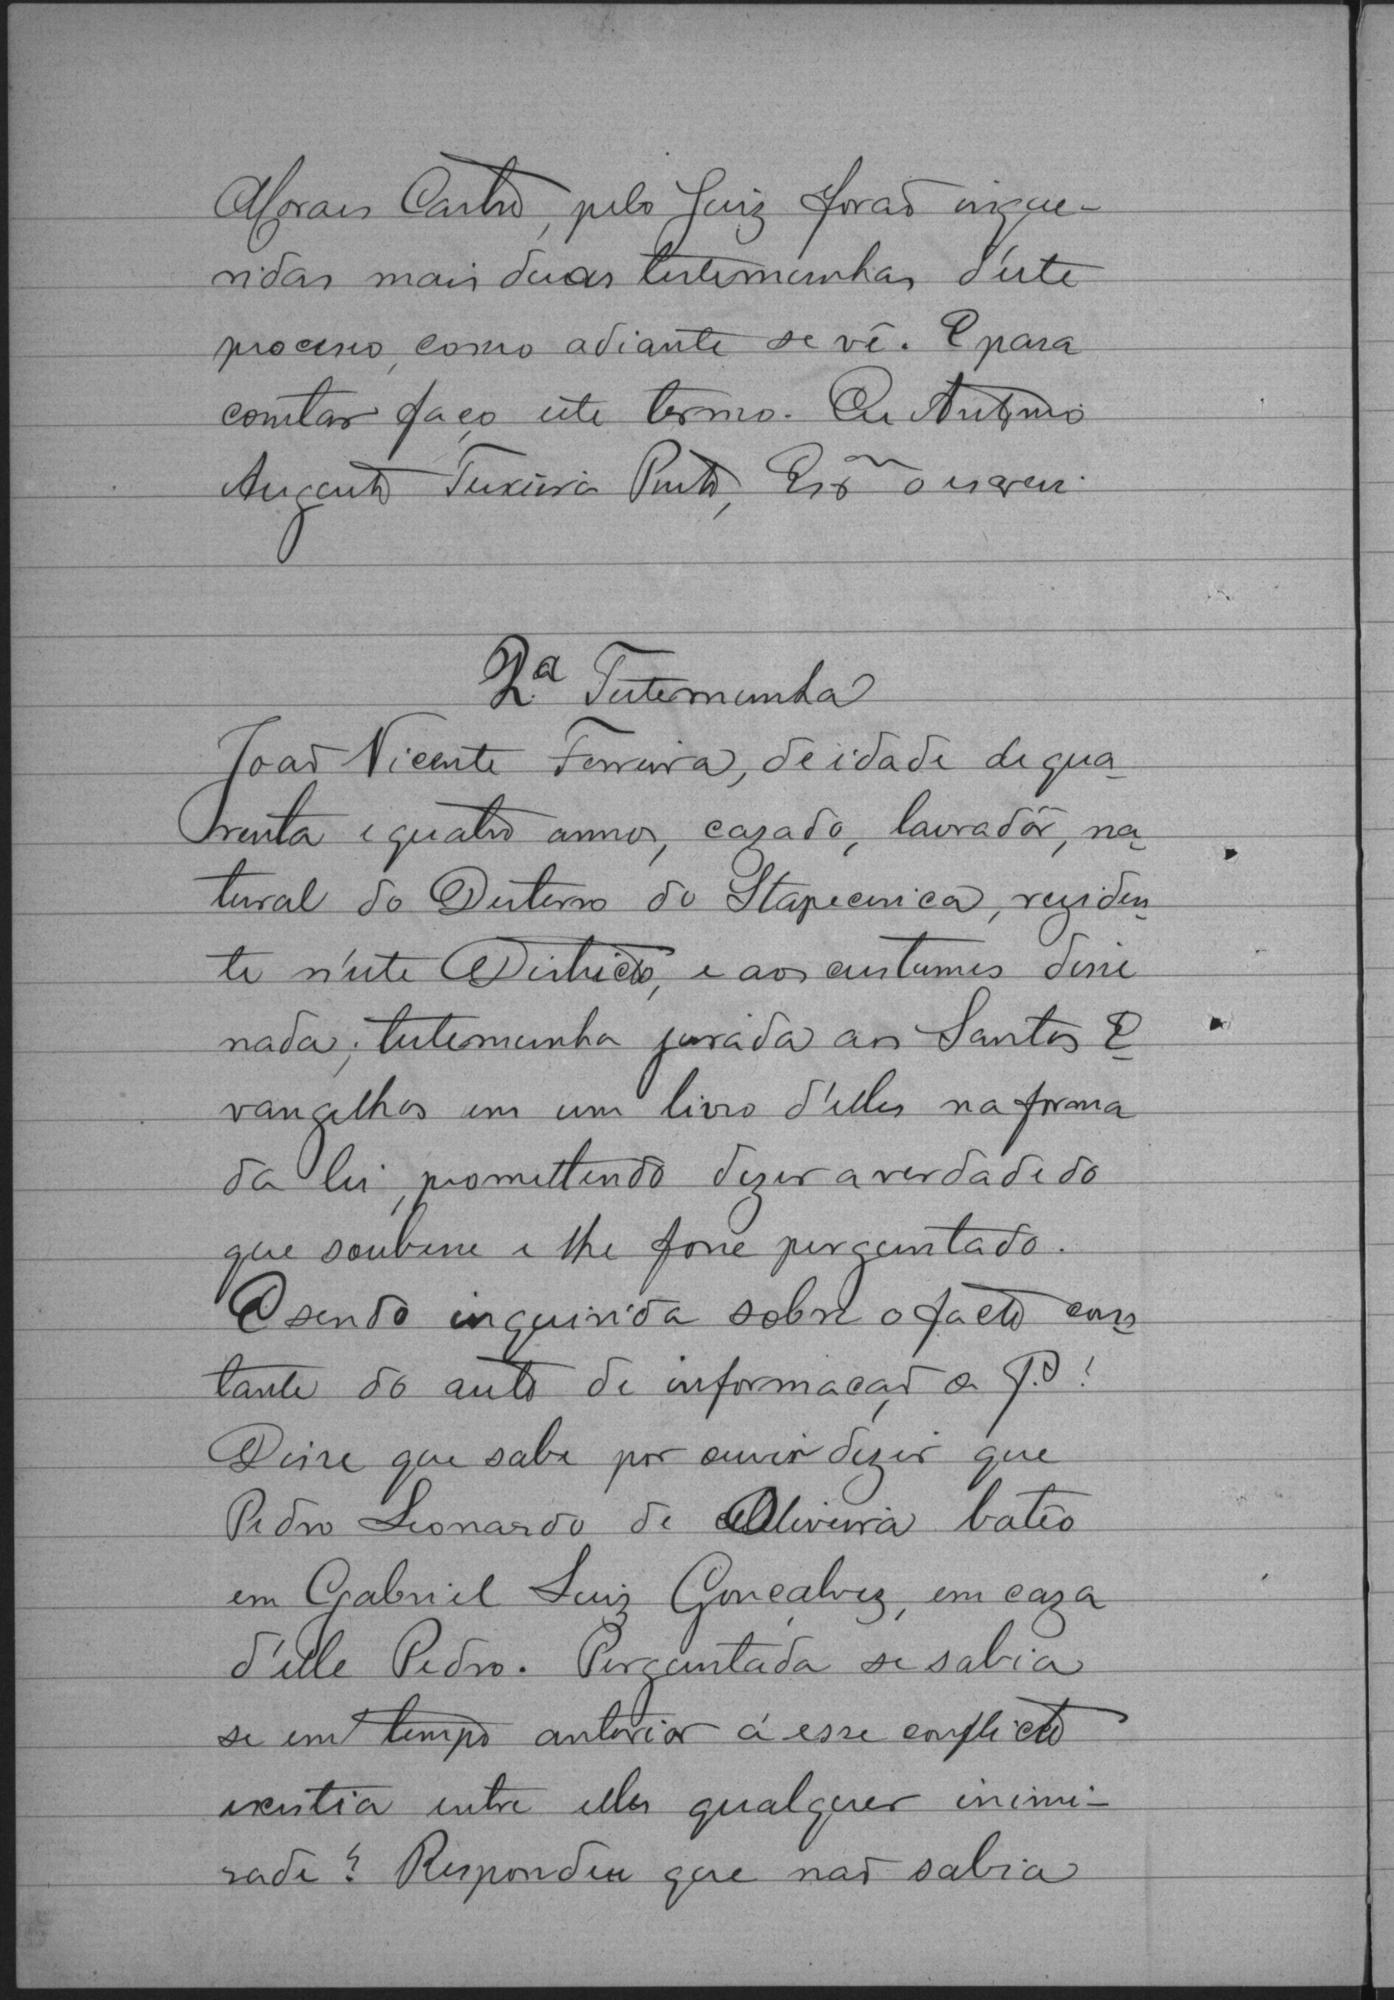 Moraes Castro, pelo Juiz forão inque-
ridas mais duas testemunhas d'este
processo, como adiante se vê. E para
constar faço este termo. Eu Antonio
Augusto Teixeira Pinto, Esc.ão o escrevi.
2.ª Testemunha
João Vicente Ferreira, de idade de qua-
renta e quatro annos, cazado, lavradôr, na-
tural do Desterro do Itapecirica, reziden-
te n'este Districto, e aos custumes disse
nada; testemunha jurada aos Santos E-
vangelhos em um livro d'elles na forma
da lei, promettendo dizer a verdade do
que soubesse e lhe fosse perguntado.
E sendo inquirida sobre o facto cons-
tante do auto de informação a P.P.!
Disse que sabe por ouvir dizer que
Pedro Leonardo de Oliveira batêo
em Gabriel Luiz Gonçalvez, em caza
d'elle Pedro. Perguntada se sabia
se em tempo anterior á esse conflicto
existia entre elles qualquer inimi-
zade? Respondeu que não sabia